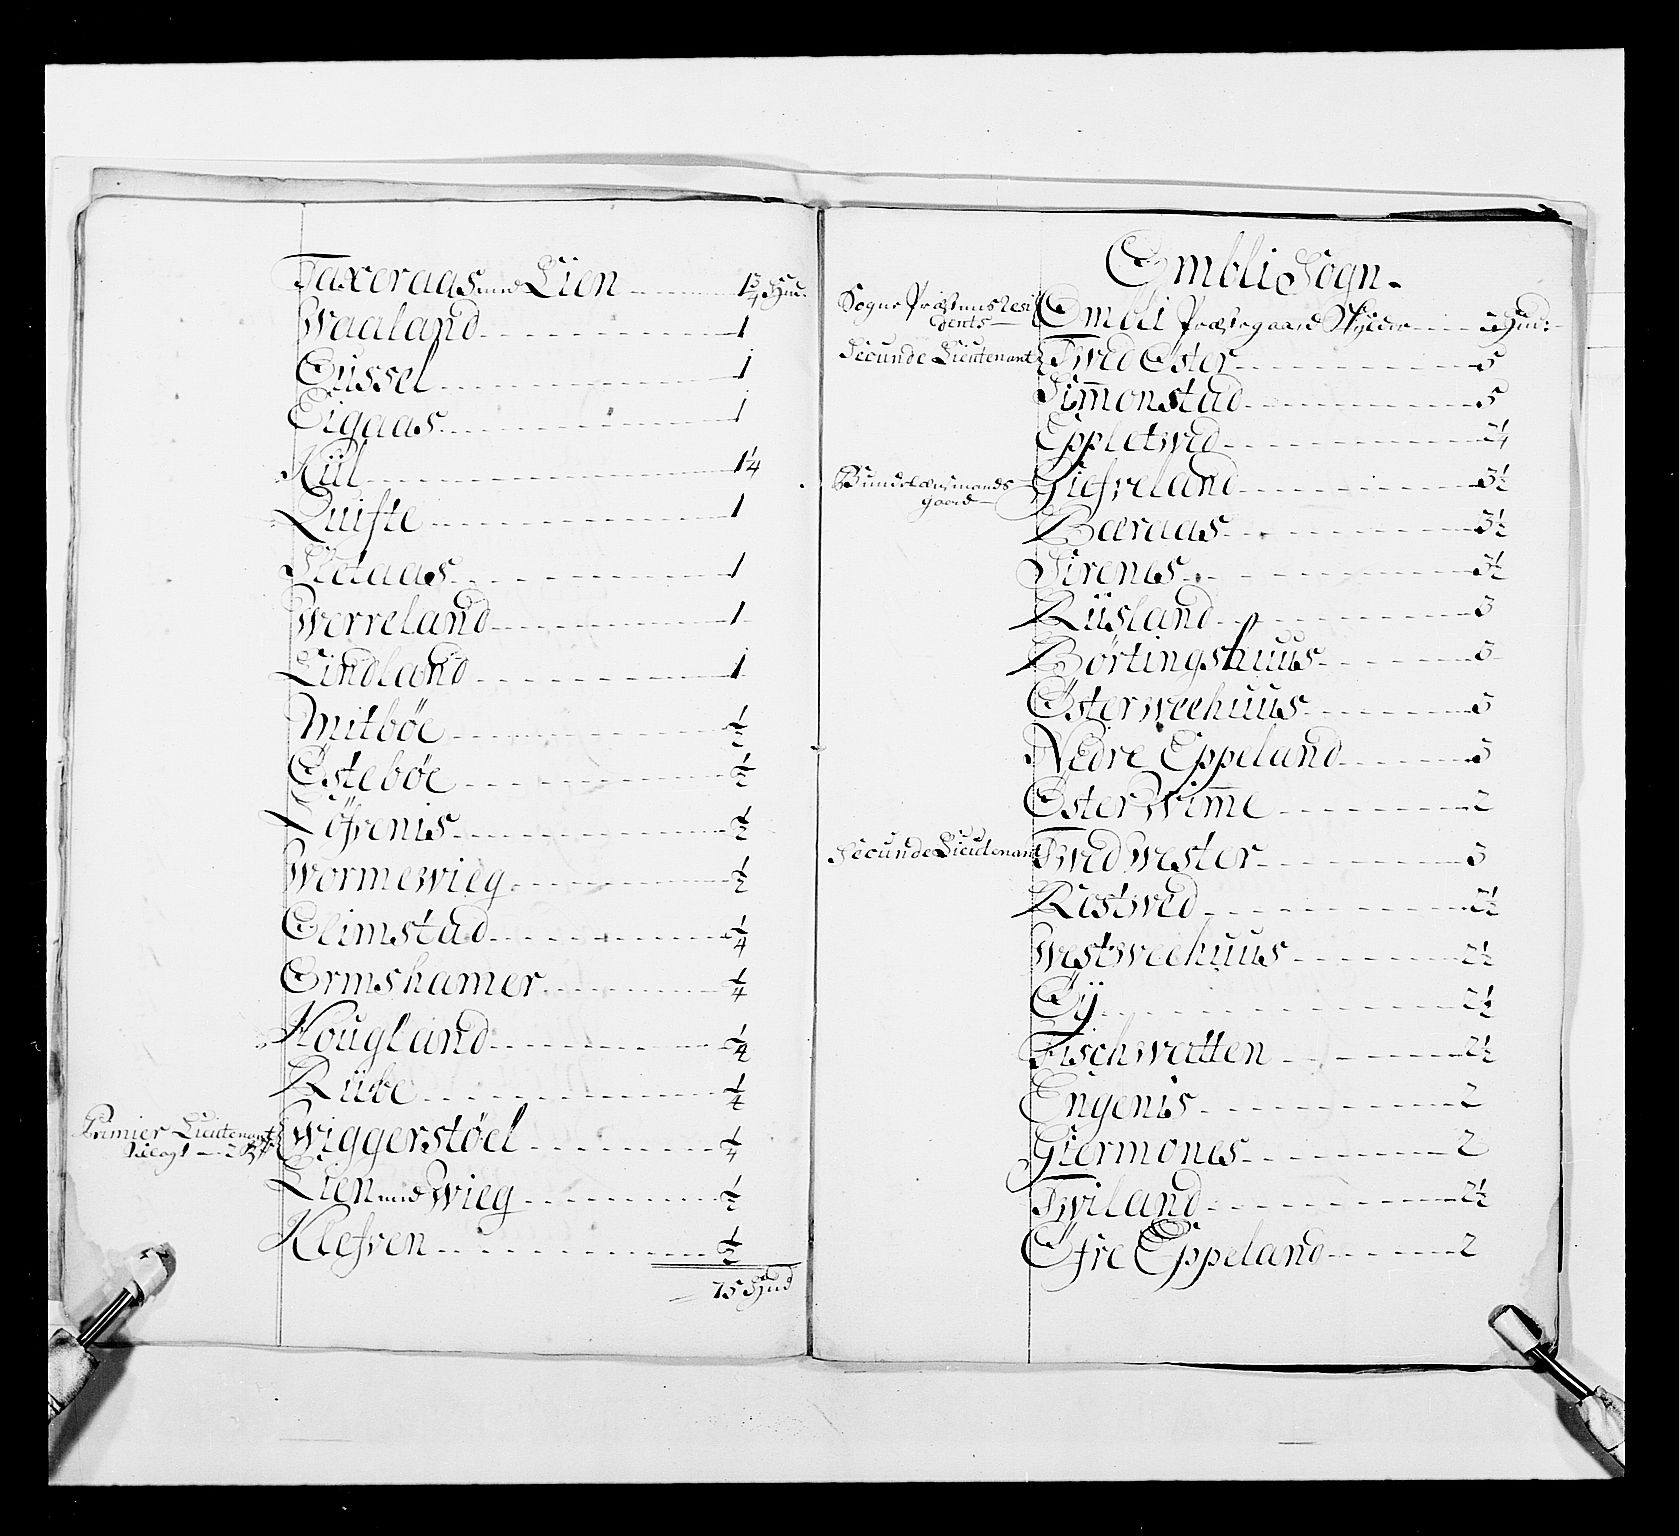 Faxeraas med Lien 1 3/4 Hud:
Waaland 1
Gussel 1
Eigaas 1
Kiil 1 1/4
Quifte 1
Slotaas 1
Werreland 1
Lindland 1
Mitbøe 1/2
Østebøe 1/2
Løfvenis 1/2
Wormewieg 1/2
Glimstad 1/4
Ormshamer 1/4
Hougland 1/4
Riibe 1/4
Primier Lieutenant
Wiggerstøel 1/4
Lien med Wieg 1/2
Klefven 1/2
75 Hud
Embli Sogn
Sogne Præstens Resi
dents
Embli Præstegaard Skylder Hud:
Secunde Lieutenant
Twed Øster 5
Simonstad 5
Eppletwed
Bundelænsmands
gaard
Giefveland 3 1/2
Baraas 3 1/2
Sirenes 3 1/2
Riisland 3
Børtingshuus 3
Østerweehuus 3
Nedre Eppeland 3
Øster Wime 2
Secunde Lieutenant
Twed Wester 3
Ristwed 2 1/2
Westweehuus 2 1/2
Øÿ 2 1/2
Fischwatten 2 1/2
Engenis 2
Giermones 2
Twiland 2 1/2
Øfre Eppeland 2